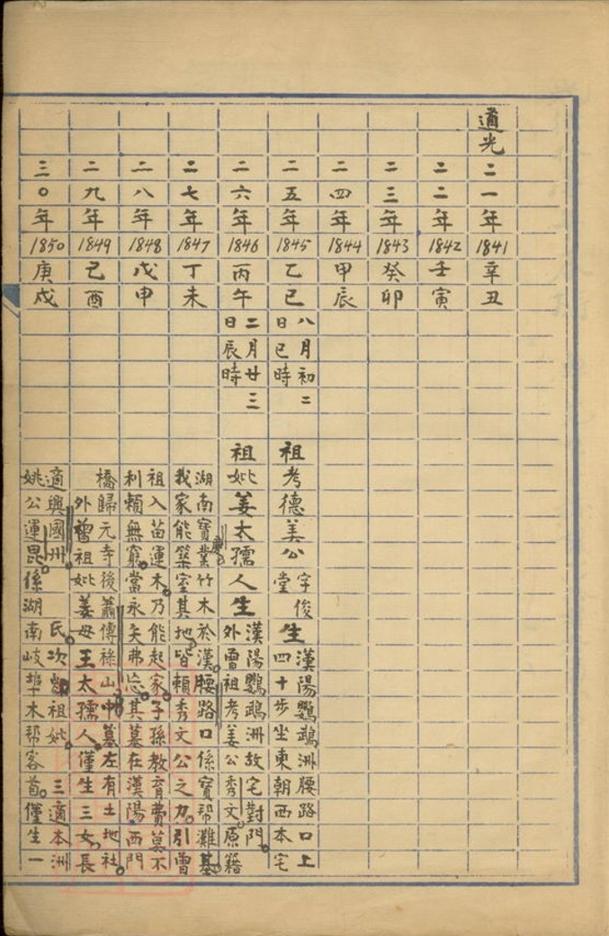 道光二一年 1841 辛丑
二二年 1842 壬寅
二三年 1843 癸卯
二四年 1844 甲辰
二五年 1845 乙巳
八月初二
日巳時
祖考德美公字俊堂生
漢陽鸚鵡洲腰路口上
四十步坐東朝西本宅
二六年 1846 丙午
二月廿三
日辰時
祖妣姜太孺人生
漢陽鸚鵡洲故宅對門
外曾祖考姜公秀文原籍
二七年 1847 丁未
湖南寶慶業竹木於漢腰路口係寶帮灘基
我家能築室其地皆賴秀文公之力引曾
二八年 1848 戊申
祖入苗運木乃能起家子孫教育費莫不
利賴無窮當永矢弗忘其墓在漢陽西門
二九年 1849 己酉
橋歸元寺後蕭傳祿山中墓左有土地社
外曾祖妣姜母王太孺人僅生三女長
三〇年 1850 庚戌
適興國州 氏次祖妣 三適本洲
姚公運昆係湖南岐埠木帮客首僅生一